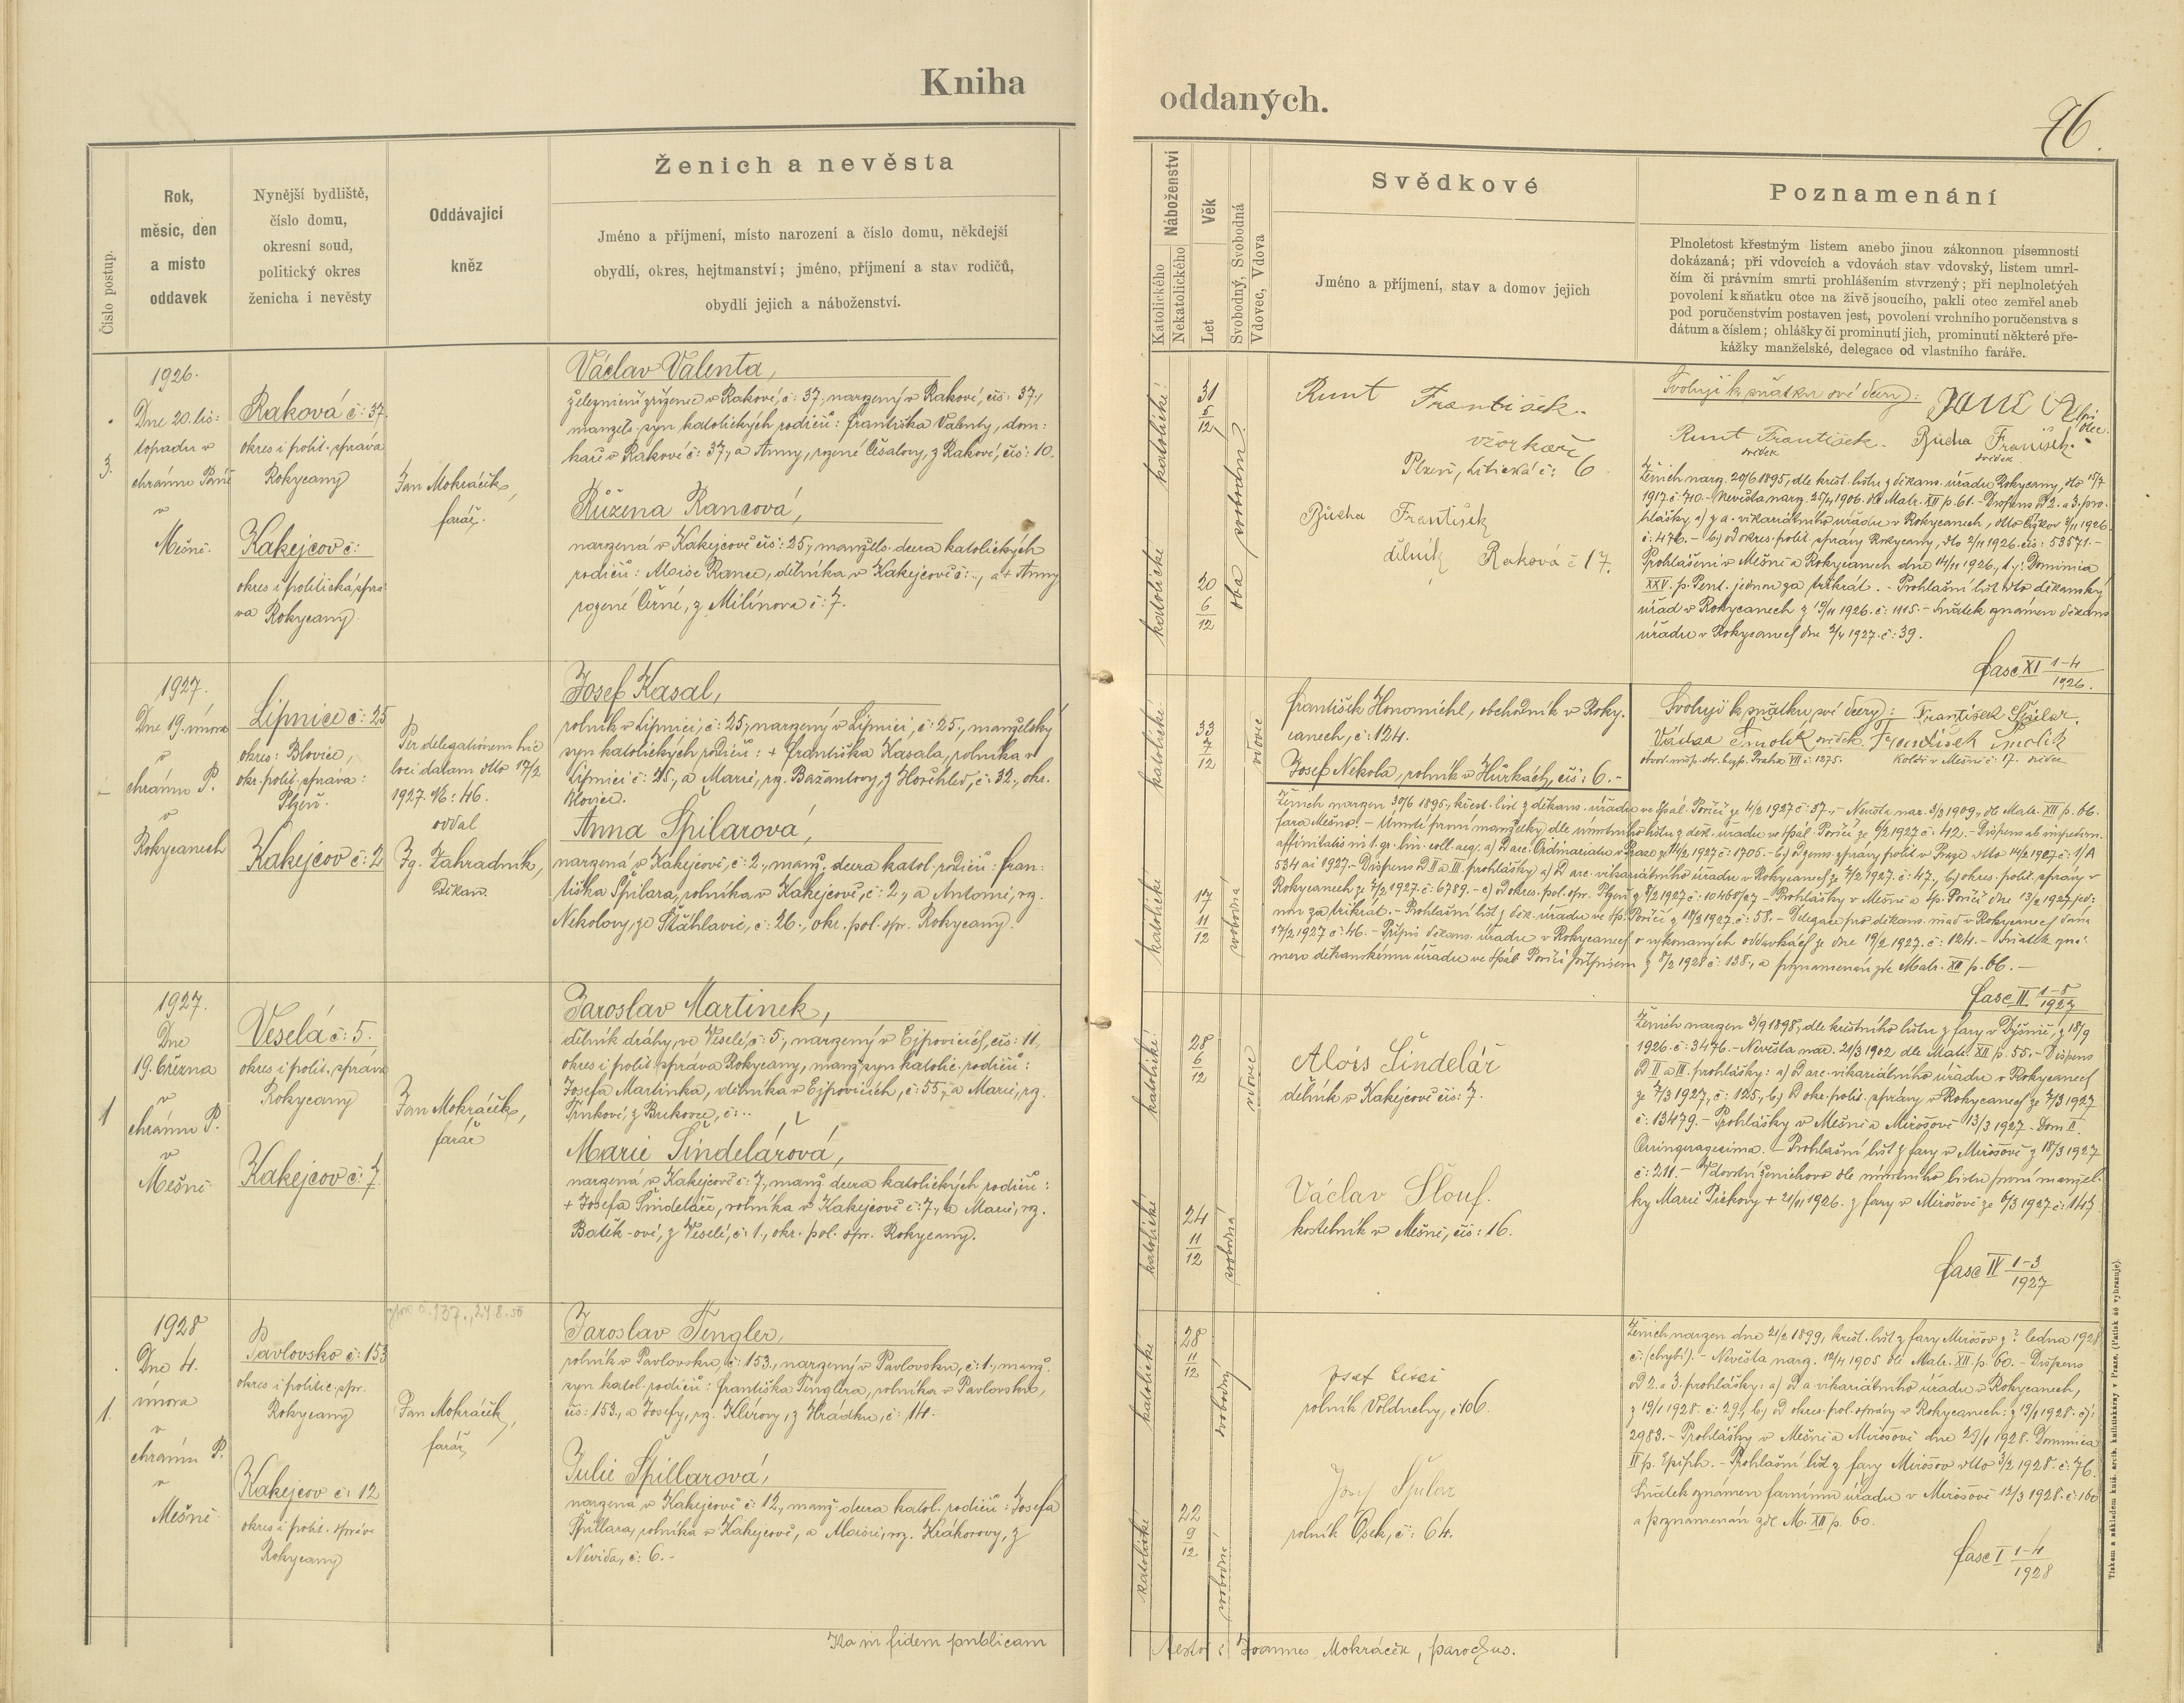 Kniha
oddaných.
76.
Číslo postup.
Rok,
měsíc, den
a místo
oddavek
Nynější bydliště,
číslo domu,
okresní soud,
politický okres
ženicha i nevěsty
Oddávající
kněz
Ženich a nevěsta
Jméno a příjmení, místo narození a číslo domu, někdejší
obydlí, okres, hejtmanství; jméno, příjmení a stav rodičů,
obydlí jejich a náboženství.
Náboženství
Katolického
Nekatolického
Věk
Let
Svobodný, Svobodná
Vdovec, Vdova
Svědkové
Jméno a příjmení, stav a domov jejich
Poznamenání
Plnoletost křestným listem anebo jinou zákonnou písemností
dokázaná; při vdovcích a vdovách stav vdovský, listem umrl-
čím či právním smrti prohlášením stvrzený; při neplnoletých
povolení k sňatku otce na živě jsoucího, pakli otec zemřel aneb
pod poručenstvím postaven jest, povolení vrchního poručenstva s
dátum a číslem; ohlášky či prominutí jich, prominutí některé pře-
kážky manželské, delegace od vlastního faráře.
3.
1926.
Dne 20. lis:
topadu v
chrámu Páně
v
Mešně.
Raková č: 37
okres i polit. správa
Rokycany
Kakejcov č:
okres i politická sprá
va Rokycany.
Jan Mokráček,
farář.
Václav Valenta,
železniční zřízenec v Rakové, č: 37, narozený v Rakové, čís: 37,
manžels. syn katolických rodičů: Františka Valenty, dom:
káře v Rakové č: 37, a Anny, rozené Čišalovy, z Rakové, čís: 10.
Růžena Rancová,
narozená v Kakejcově čís: 25, manžels. dcera katolických
rodičů: Aloise Rance, dělníka v Kakejcově č: .., a + Anny
rozené Černé, z Milínova č: 7.
katolické
katolické
31 5/12
20 6/12
oba svobodní
Runt František.
vzorkař
Plzeň, Litická č: 6
Bucha František
dělník Raková č 17.
Svoluji k sňatku své dcery: otec.
Runt František. Bucha František.
svědek svědek
Ženich naroz. 20/6 1895, dle křest. listu z děkans. úřadu Rokycany, dto 15/7
1917. č: 710. - Nevěsta naroz. 25/4 1906. dle Matr. XII p. 61. - Dispens D 2. a 3. pro:
hlášky, a) z a. vikariátního úřadu v Rokycanech, dtto 2/11 1926
č: 476. - b) od okres. polit. správy Rokycany, dto 2/11 1926. čís: 53571. -
Prohlášeni v Mešně a Rokycanech dne 14/11 1926, t. j. Dominica
XXV. p. Pent. jednou za třikrát. - Prohlašní list dto děkanský
úřad v Rokycanech z 19/11 1926. č: 1115. - Sňatek oznámen děkans
úřadu v Rokycanech dne 3/4 1927. č: 39.
fasc XI 1-4/1926.
1927.
Dne 19. února
v
chrámu P.
v
Rokycanech
Lipnice č: 25
okres: Blovice,
okr. polit. správa:
Plzeň.
Kakejcov č: 2
Per delegationem hic
loci datam dtto 17/2
1927. №: 46.
oddal
Ig. Zahradník,
děkan.
Josef Kasal,
rolník v Lipnici, č: 25, narozený v Lipnici, č: 25, manželský
syn katolických rodičů: + Františka Kasala, rolníka v
Lipnici č: 25, a Marie, rz. Bažantovy, z Horchled, č: 32, okr.
Blovice.
Anna Špilarová,
narozená v Kakejcově, č: 2, manž. dcera katol. rodičů: Fran-
tiška Špilara, rolníka v Kakejcově, č: 2, a Antonie, rz.
Nekolovy, ze Šťáhlavic, č: 26., okr. pol. spr. Rokycany.
katolické
katolické
33 7/12
17 11/12
vdovec
svobodná
František Honomichl, obchodník v Roky.
canech, č: 124.
Josef Nekola, rolník v Hůrkách, čís: 6. -
Svoluji k sňatku své dcery: František Špilar.
Václav Smolík svědek. František Smolík
Praha VII č: 1275. Kolář v Mešně č: 17. svědek
Ženich narozen 30/6 1895, křest. list z děkans. úřadu ve Spál. Poříčí ze 4/2 1927 č: 37. - Nevěsta nar. 3/3 1909, dle Matr. XII p. 66.
fara Mešno. - Úmrtí první manželky dle úmrtního listu z děk. úřadu ve Spál. Poříčí ze 6/2 1927 č: 42. - Dispens ab impedim.
affinitatis in I. gr. lin. coll. aeq. a) D arc. Ordinariatu v Praze ze 14/2 1927 č: 1705. - b) D zems. správy polit. v Praze dtto 14/2 1927 č: 1/A
534 ai 1927. - Dispens D II a III. prohlášky a) D arc. vikariátního úřadu v Rokycanech ze 7/2 1927. č: 47., b) okres. polit. správy v
Rokycanech ze 7/2 1927. č: 6789. - c) D okres. pol. spr. Plzeň z 8/2 1927 č: 10468/27 - Prohlášky v Mešně a Sp. Poříčí dne 13/2 1927 jed:
nou za třikrát. - Prohlašní list z děk. úřadu ve Sp. Poříčí z 18/2 1927. č: 58. - Delegace pro děkans. úřad v Rokycanech dána
17/2 1927 č: 46. - Přípis děkans. úřadu v Rokycanech o vykonaných oddavkách ze dne 19/2 1927. č: 124. - Sňatek ozná:
men děkanskému úřadu ve Spál. Poříčí přípisem z 8/2 1928 č: 138., a poznamenán zde Matr. XII p. 66. -
fasc II 1-8/1927
1
1927.
Dne
19. března
v
chrámu P.
v
Mešně.
Veselá č: 5.
okres i polit. správa
Rokycany
Kakejcov č: 7.
Jan Mokráček,
farář
Jaroslav Martinek,
dělník dráhy, ve Veselé, č: 5, narozený v Ejpovicích, čís: 11,
okres i polit. správa Rokycany, manž. syn katolic. rodičů:
Josefa Martinka, dělníka v Ejpovicích, č: 55, a Marie, rz.
Trnkové, z Bukovce, č: ..
Marie Šindelářová,
narozená v Kakejcově č: 7, manž. dcera katolických rodičů:
+ Josefa Šindeláře, rolníka v Kakejcově č: 7, a Marie, rz.
Batěk-ové, z Veselé, č: 1., okr. pol. spr. Rokycany.
katolické
katolické
28 6/12
24 11/12
vdovec
svobodná
Alois Šindelář
dělník v Kakejcově čís: 7.
Václav Šlouf.
kostelník v Mešně, čís: 16.
Ženich narozen 3/9 1898, dle křestního listu z fary v Dýšině, z 18/9
1926. č: 3476. - Nevěsta nar. 21/3 1902 dle Matr. XII p. 55. - Dispens
D II a III. prohlášky: a) D arc. vikariátního úřadu v Rokycanech
ze 7/3 1927, č: 125, b) D okr. polit. správy v Rokycanech ze 7/3 1927
č: 13479. - Prohlášky v Mešně a Mirošově 13/3 1927 - Dom II.
Quinquagesima. - Prohlašní list z fary v Mirošově z 18/3 1927
č: 211. - Vdovství ženichovo dle úmrtního listu první manžel-
ky Marie + 21/11 1926. z fary v Mirošově ze 6/3 1927 č: 147.
fasc IV 1-3/1927
1.
1928
Dne 4.
února
v
chrámu P.
v
Mešně.
Pavlovsko č: 153
okres i politic. spr.
Rokycany
Kakejcov č: 12
okres i polit. správa
Rokycany
č. 137., 24.8.50
Jan Mokráček,
farář
Jaroslav Tengler,
rolník v Pavlovsku, č: 153., narozený v Pavlovsku, č: 1., manž.
syn katol. rodičů: Františka Tenglera, rolníka v Pavlovsku,
čís: 153., a Josefy, rz. Klírovy, z Hrádku, č: 14.
Julie Špillarová,
narozená v Kakejcově č: 12., manž. dcera katol. rodičů: Josefa
Špillara, rolníka v Kakejcově, a Aloisie, rz. Krákorovy, z
Nevida, č: 6. -
katolické
katolické
28 11/12
22 9/12
svobodný
svobodná
Josef
rolník Volduchy, č 106.
Josef Špilar
rolník Osek, č: 64.
Ženich narozen dne 21/2 1899, křest. list z fary Mirošov z ? ledna 1928
č: (chybí). - Nevěsta naroz. 12/4 1905 dle Matr. XII. p. 60. - Dispens
D 2. a 3. prohlášky: a) D a. vikariátního úřadu v Rokycanech,
z 19/1 1928. č: 29., b) D okres. pol. správy v Rokycanech: z 19/1 1928. čj:
2983. - Prohlášky v Mešně a Mirošově dne 29/1 1928. Dominica
IV p. Epiph. - Prohlašní list z fary Mirošov dtto 3/2 1928. č: 76.
Sňatek oznámen farnímu úřadu v Mirošově 12/3 1928. č: 160
a poznamenán zde M. XII p. 60.
fasc I 1-4/1928
Ita in fidem publicam
testor: Joannes Mokráček, parochus.
Tiskem a nákladem knihtiskárny v Praze. (Patisk se vyhrazuje).